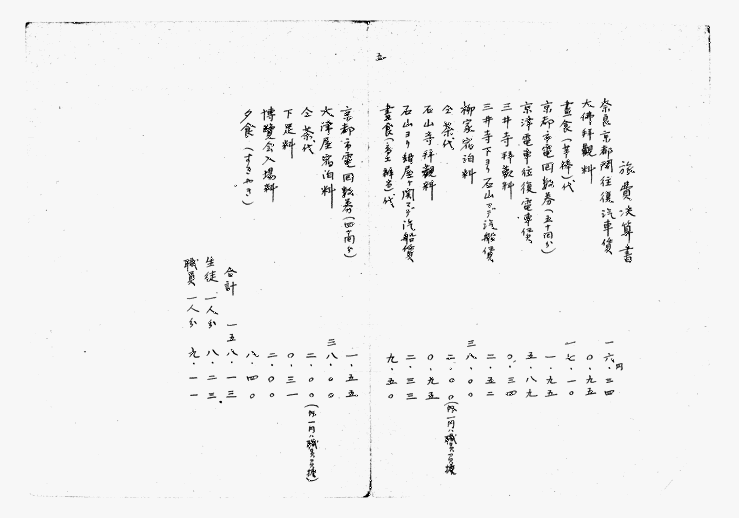 五
旅費決算書
奈良京都間往復汽車賃 一六・三四円
大佛拝観料 〇・九五
昼食(芋棒)代 一七・一〇
京都市電回数券(五十回分) 一・九五
京津電車往復電車賃 五・八九
三井寺拝観料 〇・三四
三井寺下ヨリ石山マデ汽船賃 二・五二
柳家宿泊料 三八・〇〇
仝茶代 二・〇〇(内一円ハ職員負擔)
石山寺拝観料 〇・九五
石山ヨリ紺屋ヶ関マデ汽船賃 二・三三
昼食(弁当)代 九・五〇
京都市電回数券(四十回分) 一・五五
大津屋宿泊料 三八・〇〇
仝茶代 二・〇〇(内一円ハ職員負擔)
下足料 〇・三一
博覧会入場料 二・〇〇
夕食(すきやき) 八・四〇
合計 一五八・一三
生徒一人分 八・二三
職員一人分 九・一一